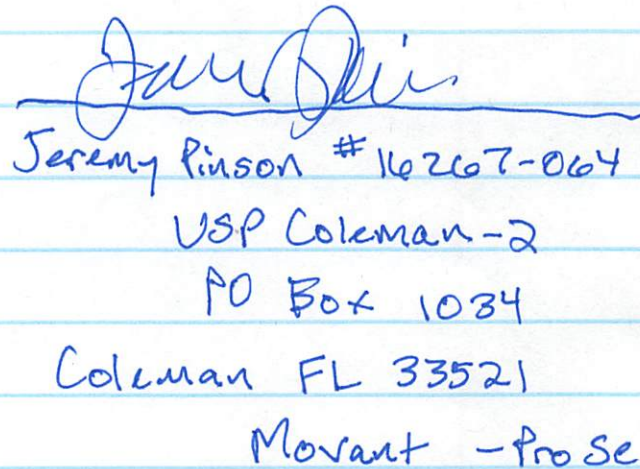 Jeremy Pinson # 16267-064
USP Coleman-2
PO Box 1034
Coleman FL 33521
Movant - Pro Se